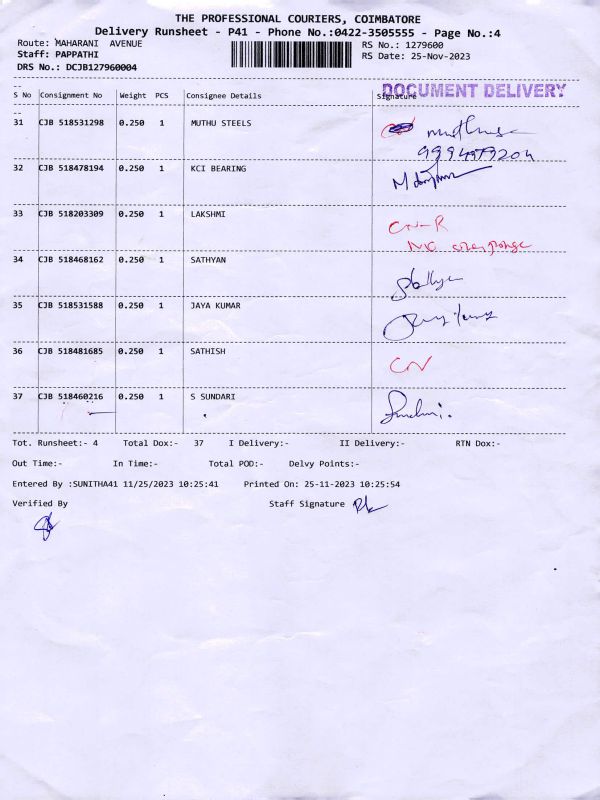 THE PROFESSIONAL COURIERS, COIMBATORE
Delivery Runsheet - P41 - Phone No.:0422-3505555 - Page No.:4
Route: MAHARANI AVENUE RS No.: 1279600
Staff: PAPPATHI RS Date: 25-Nov-2023
DRS No.: DCJB127960004
DOCUMENT DELIVERY
S No Consignment No Weight PCS Consignee Details Signature
31 CJB 518531298 0.250 1 MUTHU STEELS
9994979204
32 CJB 518478194 0.250 1 KCI BEARING
33 CJB 518203309 0.250 1 LAKSHMI CN-R
No
34 CJB 518468162 0.250 1 SATHYAN
35 CJB 518531588 0.250 1 JAYA KUMAR
36 CJB 518481685 0.250 1 SATHISH CN
37 CJB 518460216 0.250 1 S SUNDARI
Tot. Runsheet:- 4 Total Dox:- 37 I Delivery:- II Delivery:- RTN Dox:-
Out Time:- In Time:- Total POD:- Delvy Points:-
Entered By :SUNITHA41 11/25/2023 10:25:41 Printed On: 25-11-2023 10:25:54
Verified By Staff Signature